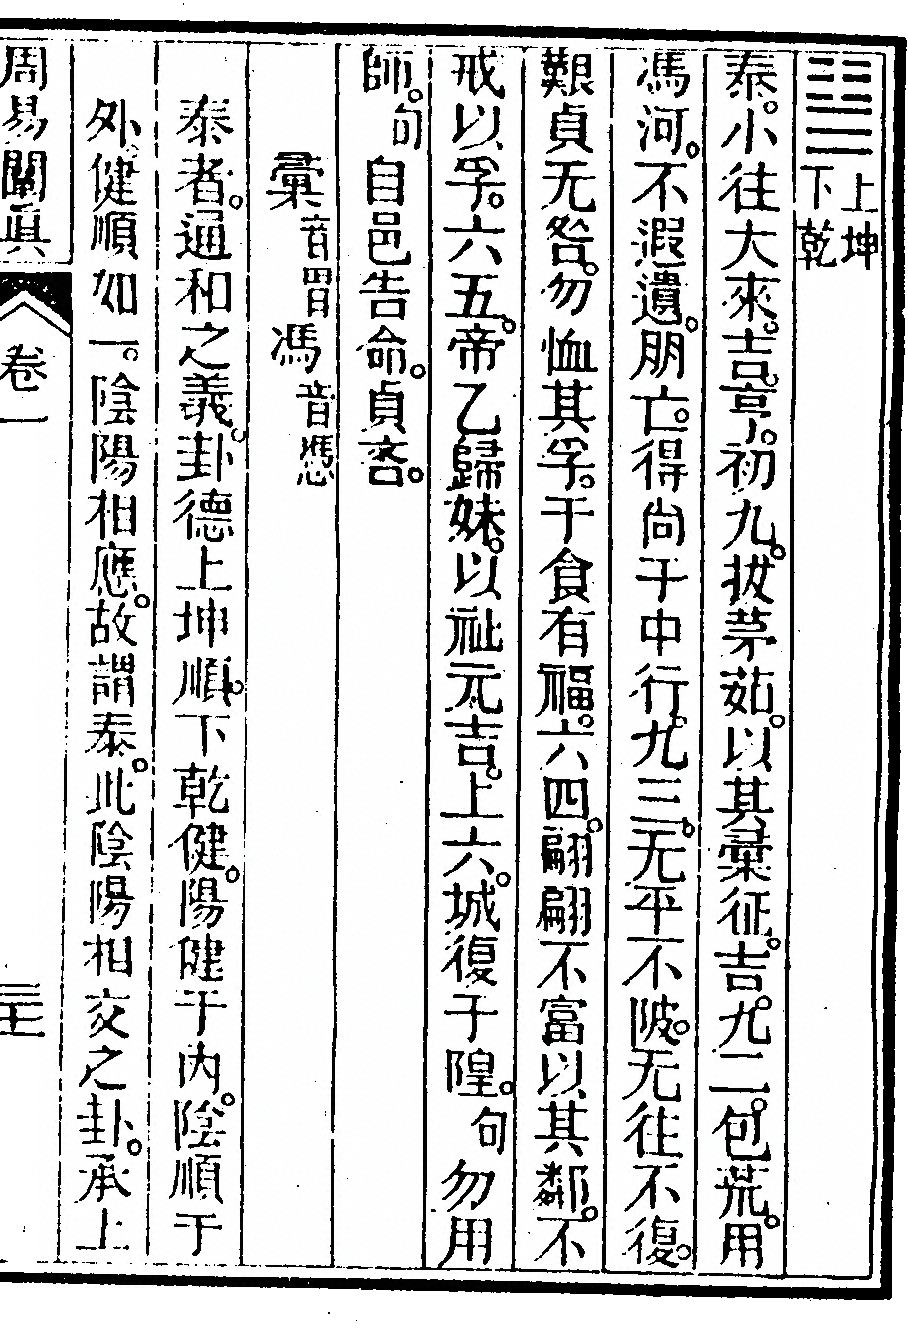 ䷊ 上坤下乾
泰。小往大來。吉。亨。初九。拔茅茹。以其彙征。吉。九二。包荒。用
馮河。不遐遺。朋亡。得尙于中行。九三。无平不陂。无往不復。
艱貞无咎。勿恤其孚。于食有福。六四。翩翩不富以其鄰。不
戒以孚。六五。帝乙歸妹。以祉元吉。上六。城復于隍。句勿用
師。句自邑告命。貞吝。
彙音胃馮音憑
泰者。通和之義。卦德上坤順。下乾健。陽健于內。陰順于
外。健順如一。陰陽相應。故謂泰。此陰陽相交之卦。承上
周易闡眞
卷一
三十七